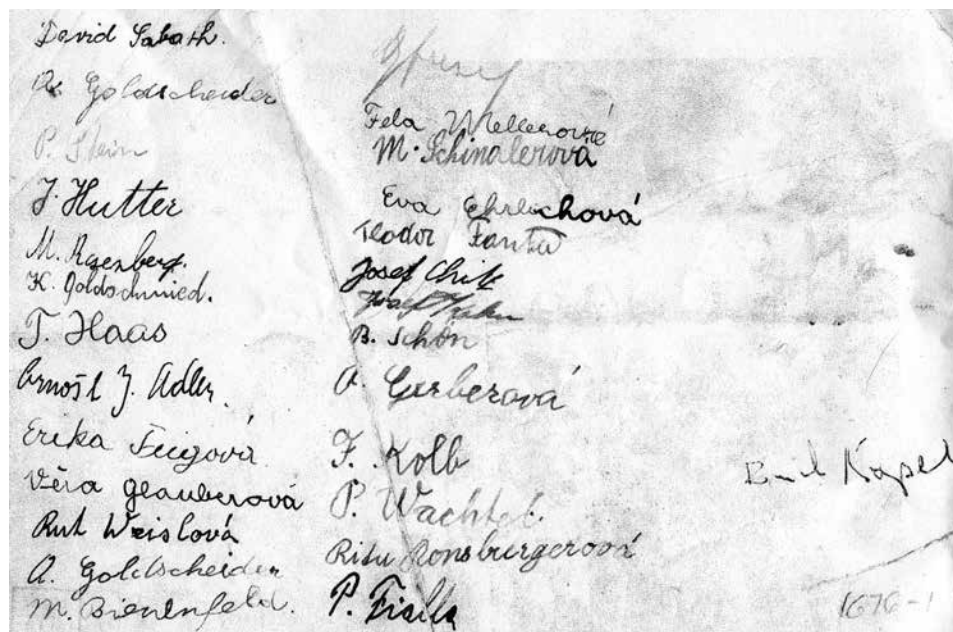 David Sabath.
Goldscheider
P. Stein
J. Hutter
M. Rosenberg.
K. Goldschmied.
T. Haas
Arnošt J. Adler.
Erika Feigová
Věra Glauberová
Rut Weislová
A. Goldscheider
M. Bienenfeld.
Fela
M. Schindlerová
Eva Ehrlichová
Teodor Fanta
Josef
Kahn
B. Schön
A. Gerberová
F. Kolb
P. Wachtel.
P.
Kapel
1676-1